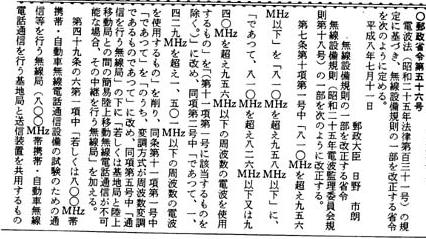 〇郵政省令第六十六号
電波法(昭和二十五年法律第百三十一号)の規
定に基づき、無線設備規則の一部を改正する省令
を次のように定める。
平成八年七月十一日
郵政大臣 日野 市朗
無線設備規則の一部を改正する省令
無線設備規則(昭和二十五年電波監理委員会規
則第十八号)の一部を次のように改正する。
第七条第十項第一号中「八一〇MHzを超え九五六
MHz以下」を「八一〇MHzを超え九五八MHz以下」に、
「であつて、八一〇MHzを超え八二八MHz以下又は九
四〇MHzを超え九五六MHz以下の周波数の電波を使用
するもの」を「(第十一項第一号に該当するものを
除く。)」に改め、同項第二号中「であつて、一、
四二九MHzを超え一、五〇一MHz以下の周波数の電波
を使用するもの」を削り、同条第十一項第一号中
「であつて」を「のうち、変調方式が周波数変調
であるものであつて」に改め、同項第五号中「通
信を行う無線局」の下に「若しくは基地局と陸上
移動局との間の簡易陸上移動無線電話通信が不可
能な場合、その中継を行う無線局」を加える。
第四十九条の六第一項中「若しくは八〇〇MHz帯
携帯・自動車無線電話通信設備の試験のための通
信等を行う無線局(八〇〇MHz帯携帯・自動車無線
電話通信を行う基地局と送信装置を共用するもの